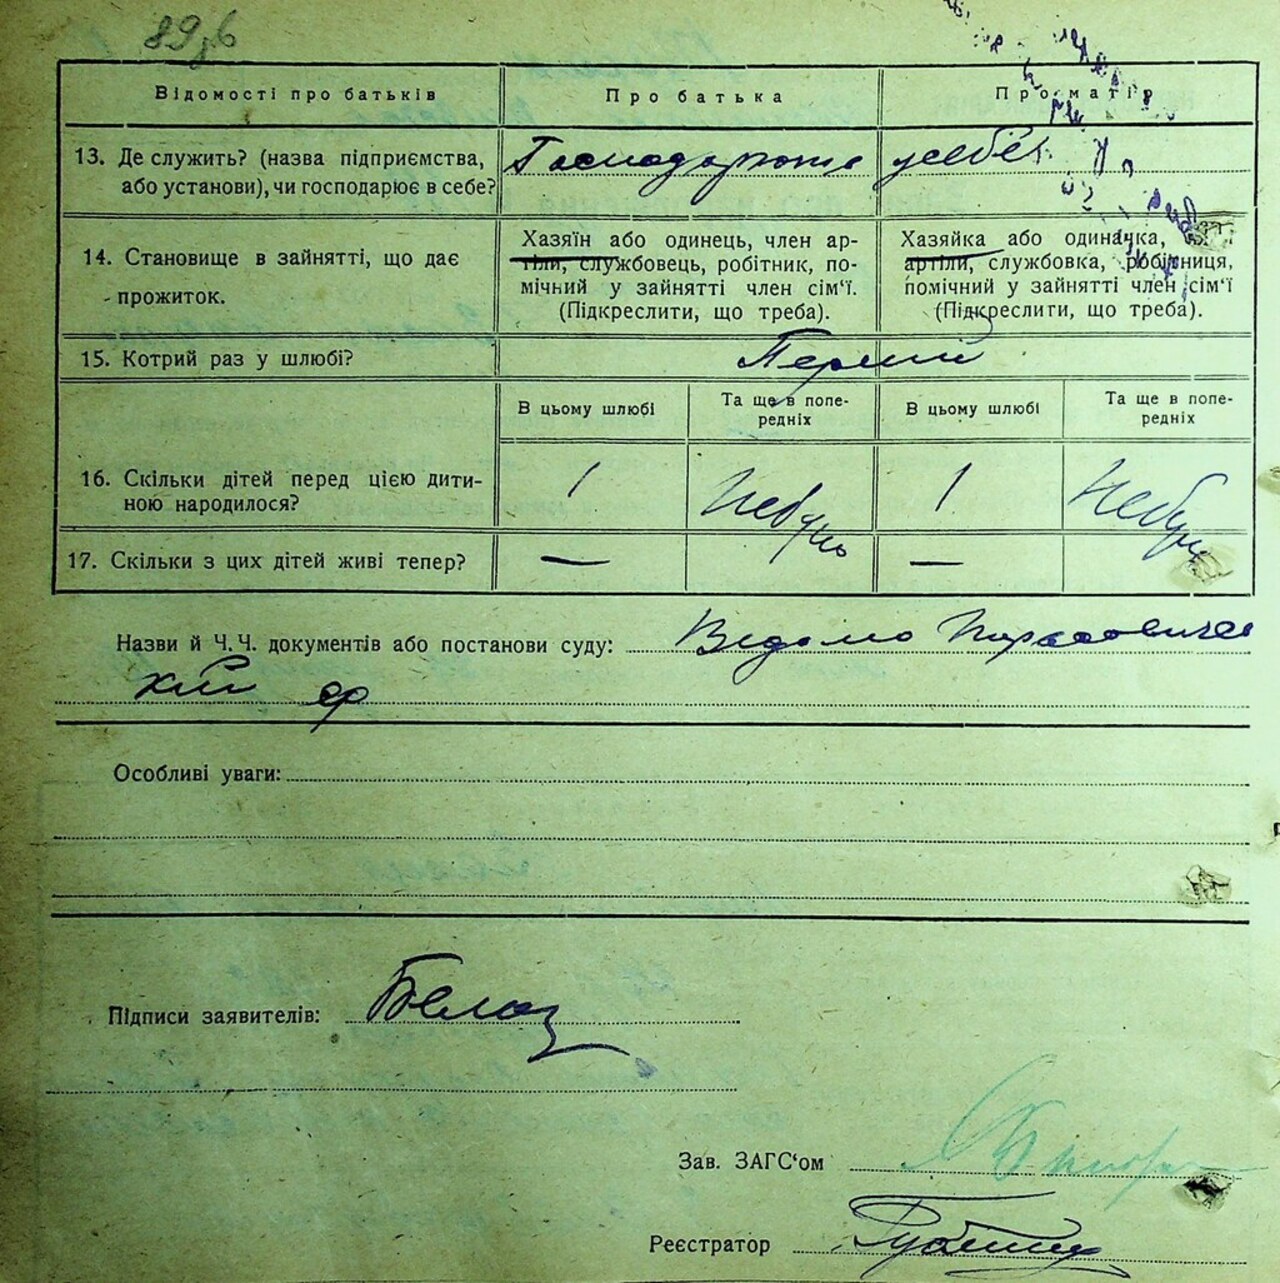 89
Відомості про батьків
Про батька
Про матір
13. Де служить? (назва підприємства,
або установи), чи господарює в себе?
у себе
14. Становище в зайнятті, що дає
прожиток.
Хазяїн або одинець, член ар-
тіли, службовець, робітник, по-
мічний у зайнятті член сім'ї.
(Підкреслити, що треба).
Хазяйка або одиначка,
артіли, службовка, робітниця,
помічний у зайнятті член сім'ї
(Підкреслити, що треба).
15. Котрий раз у шлюбі?
Перший
В цьому шлюбі
Та ще в попе-
редніх
В цьому шлюбі
Та ще в попе-
редніх
16. Скільки дітей перед цією дити-
ною народилося?
1
Небуло
1
Небуло
17. Скільки з цих дітей живі тепер?
—
—
Назви й Ч.Ч. документів або постанови суду: Відомо
Особливі уваги:
Підписи заявителів:
Зав. ЗАГС'ом
Реєстратор